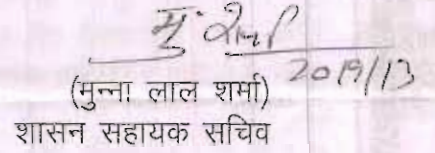 20/9/13
(मुन्ना लाल शर्मा)
शासन सहायक सचिव